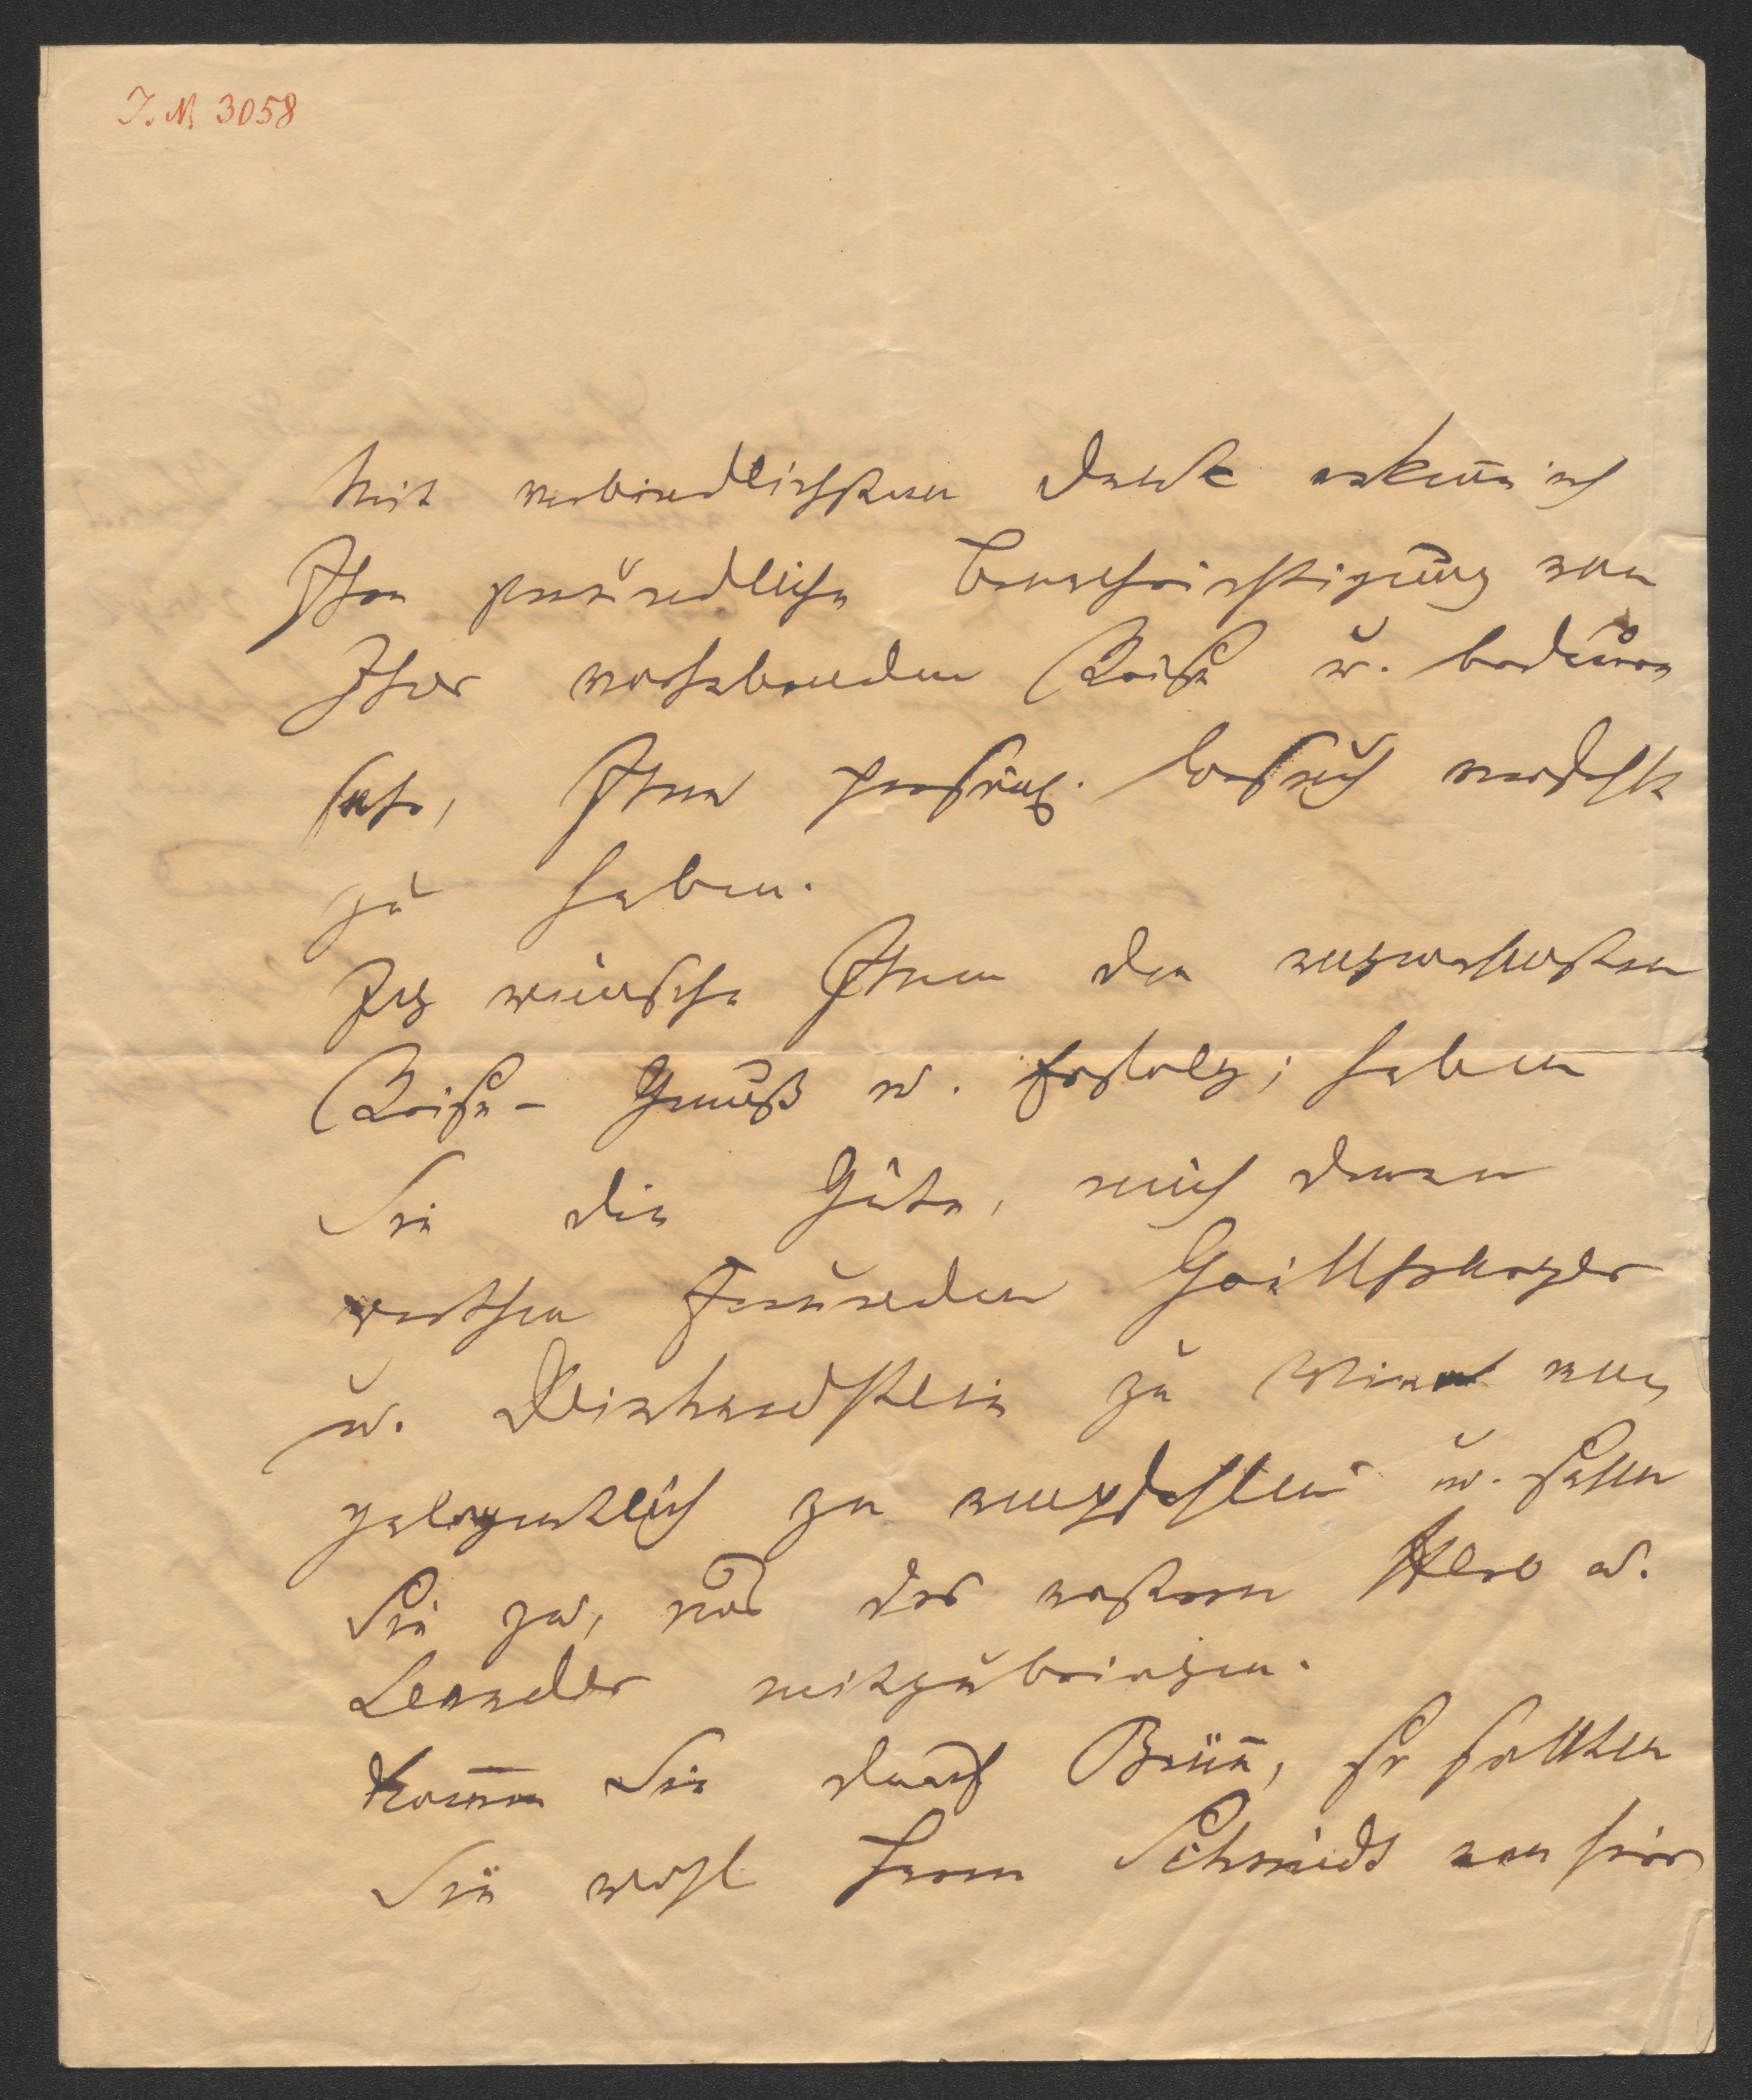 I. N 3058
Mit verbindlichstem Dank erkenn̄ ich
Ihre freundliche Benachrichtigung von
Ihrer vorhabenden Reise u. bedaure
sehr, Ihren Besuch verfehlt
zu haben.
Ich wünsche Ihnen den angenehmsten
Reise- Genuß u. Erfolg; haben
Sie die Güte, mich denen
werthen Freunden Grillparzer
u. Deinhardstein zu Wien
gelegentlich zu empfehlen u. sehen
Sie zu, uns des erstern Hero u.
Leander mitzubringen.
Kom̄en Sie durch Brün̄, so sollten
Sie wohl Herrn Schmidt von hier